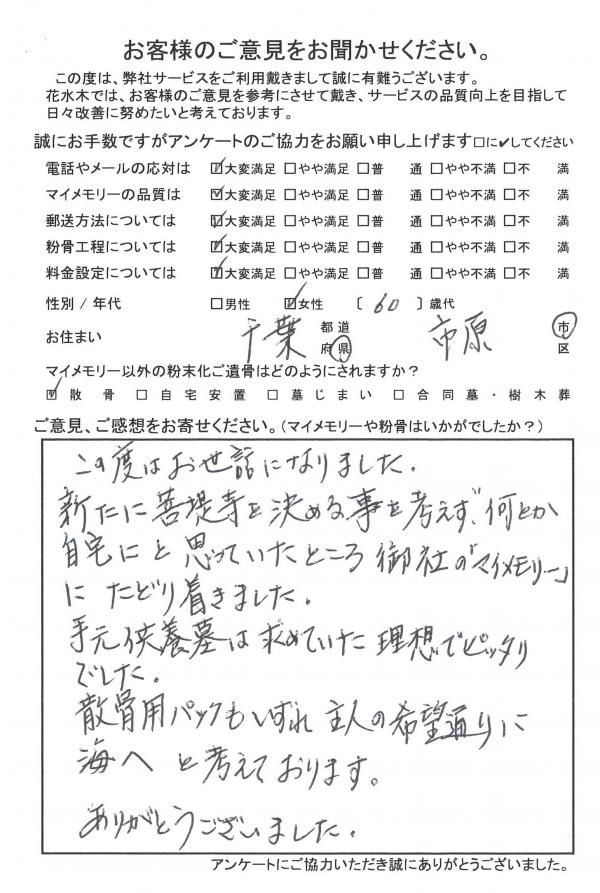 お客様のご意見をお聞かせください。
この度は、弊社サービスをご利用戴きまして誠に有難うございます。
花水木では、お客様のご意見を参考にさせて戴き、サービスの品質向上を目指して
日々改善に努めたいと考えております。
誠にお手数ですがアンケートのご協力をお願い申し上げます□に✔してください
電話やメールの応対は ☑大変満足 □やや満足 □普 通 □やや不満 □不 満
マイメモリーの品質は ☑大変満足 □やや満足 □普 通 □やや不満 □不 満
郵送方法については ☑大変満足 □やや満足 □普 通 □やや不満 □不 満
粉骨工程については ☑大変満足 □やや満足 □普 通 □やや不満 □不 満
料金設定については ☑大変満足 □やや満足 □普 通 □やや不満 □不 満
性別 / 年代 □男性 ☑女性 〔 60 〕歳代
お住まい 千葉 都道府県 市原 市区
マイメモリー以外の粉末化ご遺骨はどのようにされますか？
☑散骨 □自宅安置 □墓じまい □合同墓・樹木葬
ご意見、ご感想をお寄せください。(マイメモリーや粉骨はいかがでしたか？)
この度はお世話になりました.
新たに菩提寺を決める事を考えず、何とか
自宅にと思っていたところ御社の「マイメモリー」
にたどり着きました.
手元供養墓は求めていた理想でピッタリ
でした.
散骨用パックもいずれ主人の希望通りに
海へと考えております。
ありがとうございました.
アンケートにご協力いただき誠にありがとうございました。